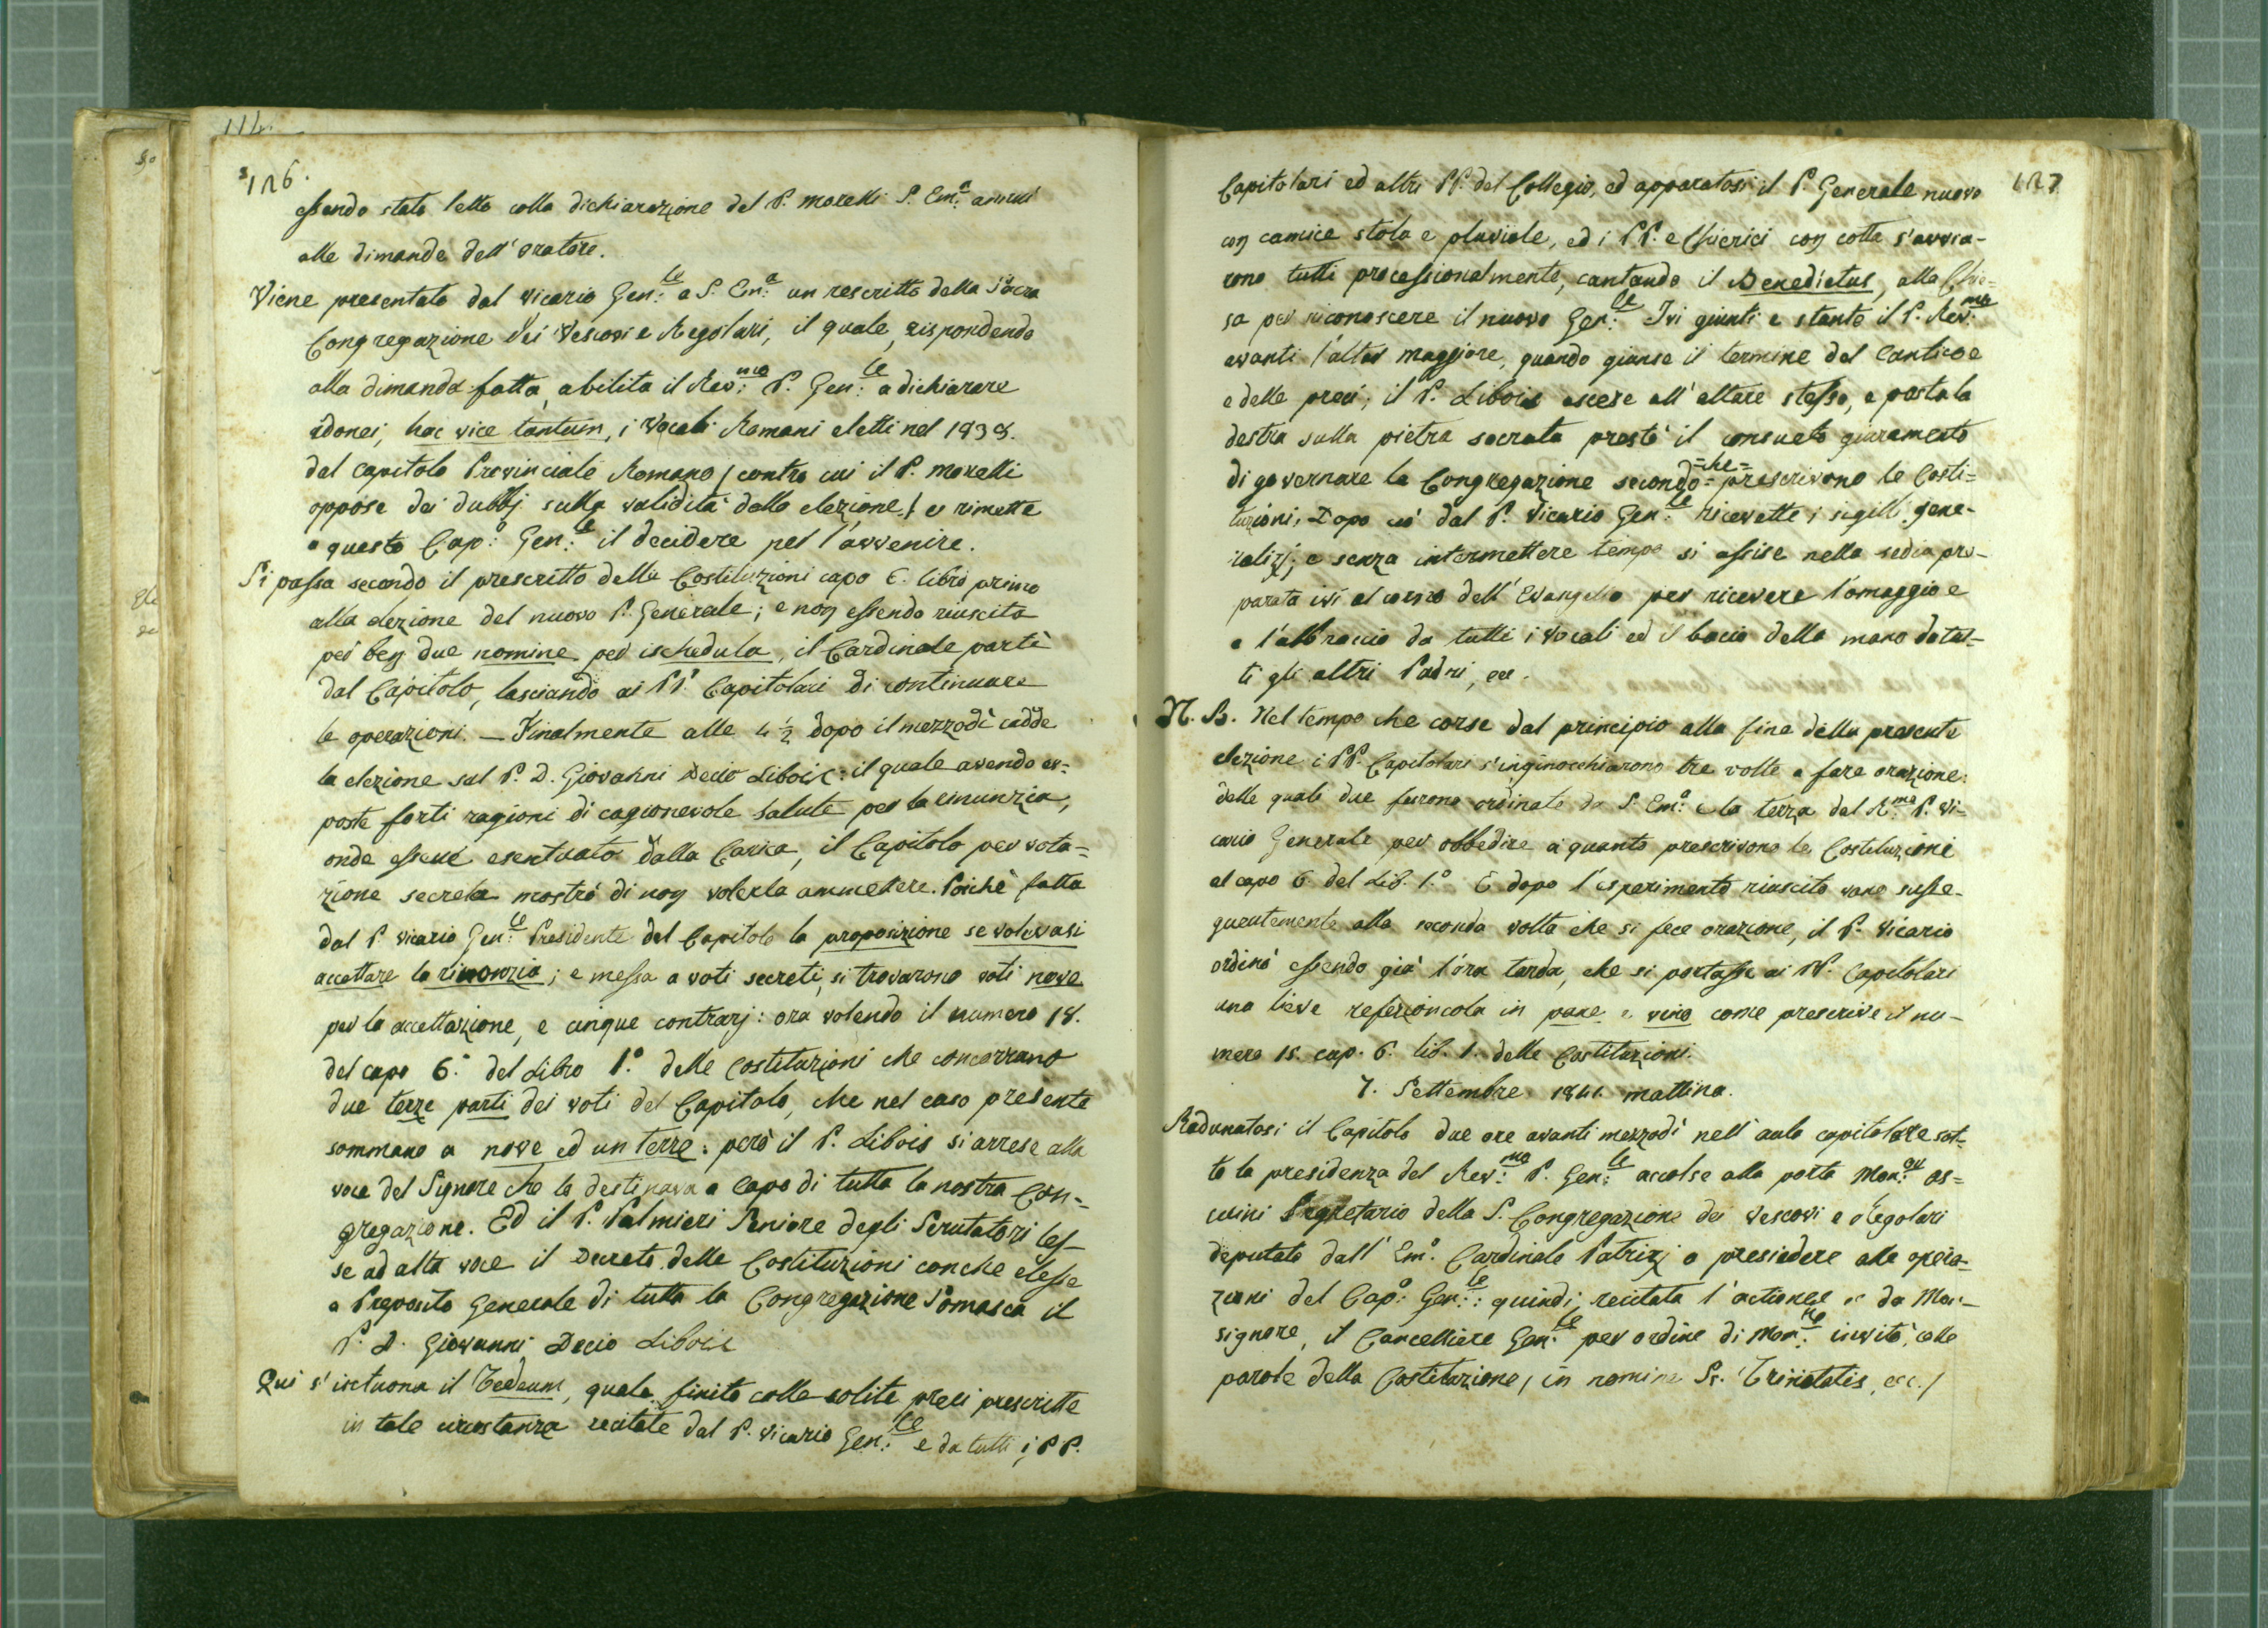 126.
essendo stato letto colla dichiarazione del P. Morelli S. Em.ª annuì
alle dimande dell'oratore.
Viene presentato dal Vicario Gen.le a S. Em.ª un rescritto della Sacra
Congregazione dei Vescovi e Regolari, il quale, rispondendo
alla dimanda fatta, abilita il Rev.mo P. Gen.le a dichiarare
idonei, hac vice tantum, i Vocali Romani eletti nel 1838.
dal capitolo Provinciale Romano / contro cui il P. Morelli
oppose dei dubbj sulla validità della elezione / e rimette
a questo Cap.o Gen.le il decidere pel l'avvenire.
Si passa secondo il prescritto delle Costituzioni capo 6. libro primo
alla elezione del nuovo P. Generale; e non essendo riuscita
per ben due nomine per ischedula, il Cardinale partì
dal Capitolo, lasciando ai PP. Capitolari di continuare
le operazioni. — Finalmente alle 4 ½ dopo il mezzodì cadde
la elezione sul P. D. Giovanni Decio Libois: il quale avendo es=
poste forti ragioni di cagionevole salute per la rinunzia,
onde essere esentuato dalla Carica, il Capitolo per vota=
zione secreta mostrò di non volerla ammettere. Poichè fatta
dal P. Vicario Gen.le Presidente del Capitolo la proposizione se volevasi
accettare la rinonzia; e messa a voti secreti, si trovarono voti nove
per la accettazione, e cinque contrarj: ora volendo il numero 18.
del capo 6.° del Libro 1.° delle Costituzioni che concorrano
due terze parti dei voti del Capitolo, che nel caso presente
sommano a nove ed un terze: però il P. Libois si arrese alla
voce del Signore che lo destinava a Capo di tutta la nostra Con=
gregazione. Ed il P. Palmieri Seniore degli Scrutatori les-
se ad alta voce il Decreto delle Costituzioni con che elesse
a Preposito Generale di tutta la Congregazione Somasca il
P. D. Giovanni Decio Libois
Qui s'intuona il Tedeum, quale finito colle solite preci prescritte
in tale circostanza recitate dal P. Vicario Gen.le e da tutti i PP.
127
Capitolari ed altri PP. del Collegio, ed apparatosi il P. Generale nuovo
con camice stola e pluviale, ed i PP. e Chierici con cotta s'avvia-
rono tutti processionalmente, cantando il Benedictus, alla Chie=
sa per riconoscere il nuovo Gen.le Ivi giunti e stante il P. Rev.mo
avanti l'altar maggiore, quando giunse il termine del Cantico e
e delle preci, il P. Libois ascese all'altare stesso, e posta la
destra sulla pietra sacrata prestò il consueto giuramento
di governare la Congregazione secondo =che= prescrivono le Costi=
tuzioni. Dopo ciò dal P. Vicario Gen.le ricevette i sigilli gene-
ralizj; e senza intermettere tempo si assise nella sedia pre-
parata ivi al corno dell'Evangelio per ricevere l'omaggio e
e l'abbraccio da tutti i Vocali ed il bacio della mano da tut-
ti gli altri Padri, ec.
N. B. Nel tempo che corse dal principio alla fine della presente
elezione i PP. Capitolari s'inginocchiarono tre volte a fare orazione:
delle quali due furono ordinate da S. Em.ª e la terza dal R.mo P. Vi-
cario Generale per obbedire a quanto prescrivono le Costituzioni
al capo 6. del Lib. 1.° E dopo l'esperimento riuscito vano susse-
guentemente alla seconda volta che si fece orazione, il P. Vicario
ordinò essendo già l'ora tarda, che si portasse ai PP. Capitolari
una lieve refezioncola in pane e vino come prescrive il nu-
mero 15. cap. 6. lib. 1. delle Costituzioni.
7. Settembre 1841. mattina.
Radunatosi il Capitolo due ore avanti mezzodì nell'aula capitolare sot-
to la presidenza del Rev.mo P. Gen.le accolse alla porta Mon.or As=
cuini Segretario della S. Congregazione dei Vescovi e Regolari
deputato dall'Em.o Cardinale Patrizj a presiedere alle opera-
zioni del Cap.o Gen.le: quindi, recitata l'actiones ec da Mon-
signore, il Cancelliere Gen.le per ordine di Mon.re invitò, colle
parole della Costituzione / in nomine Ss. Trinitatis, ec. /